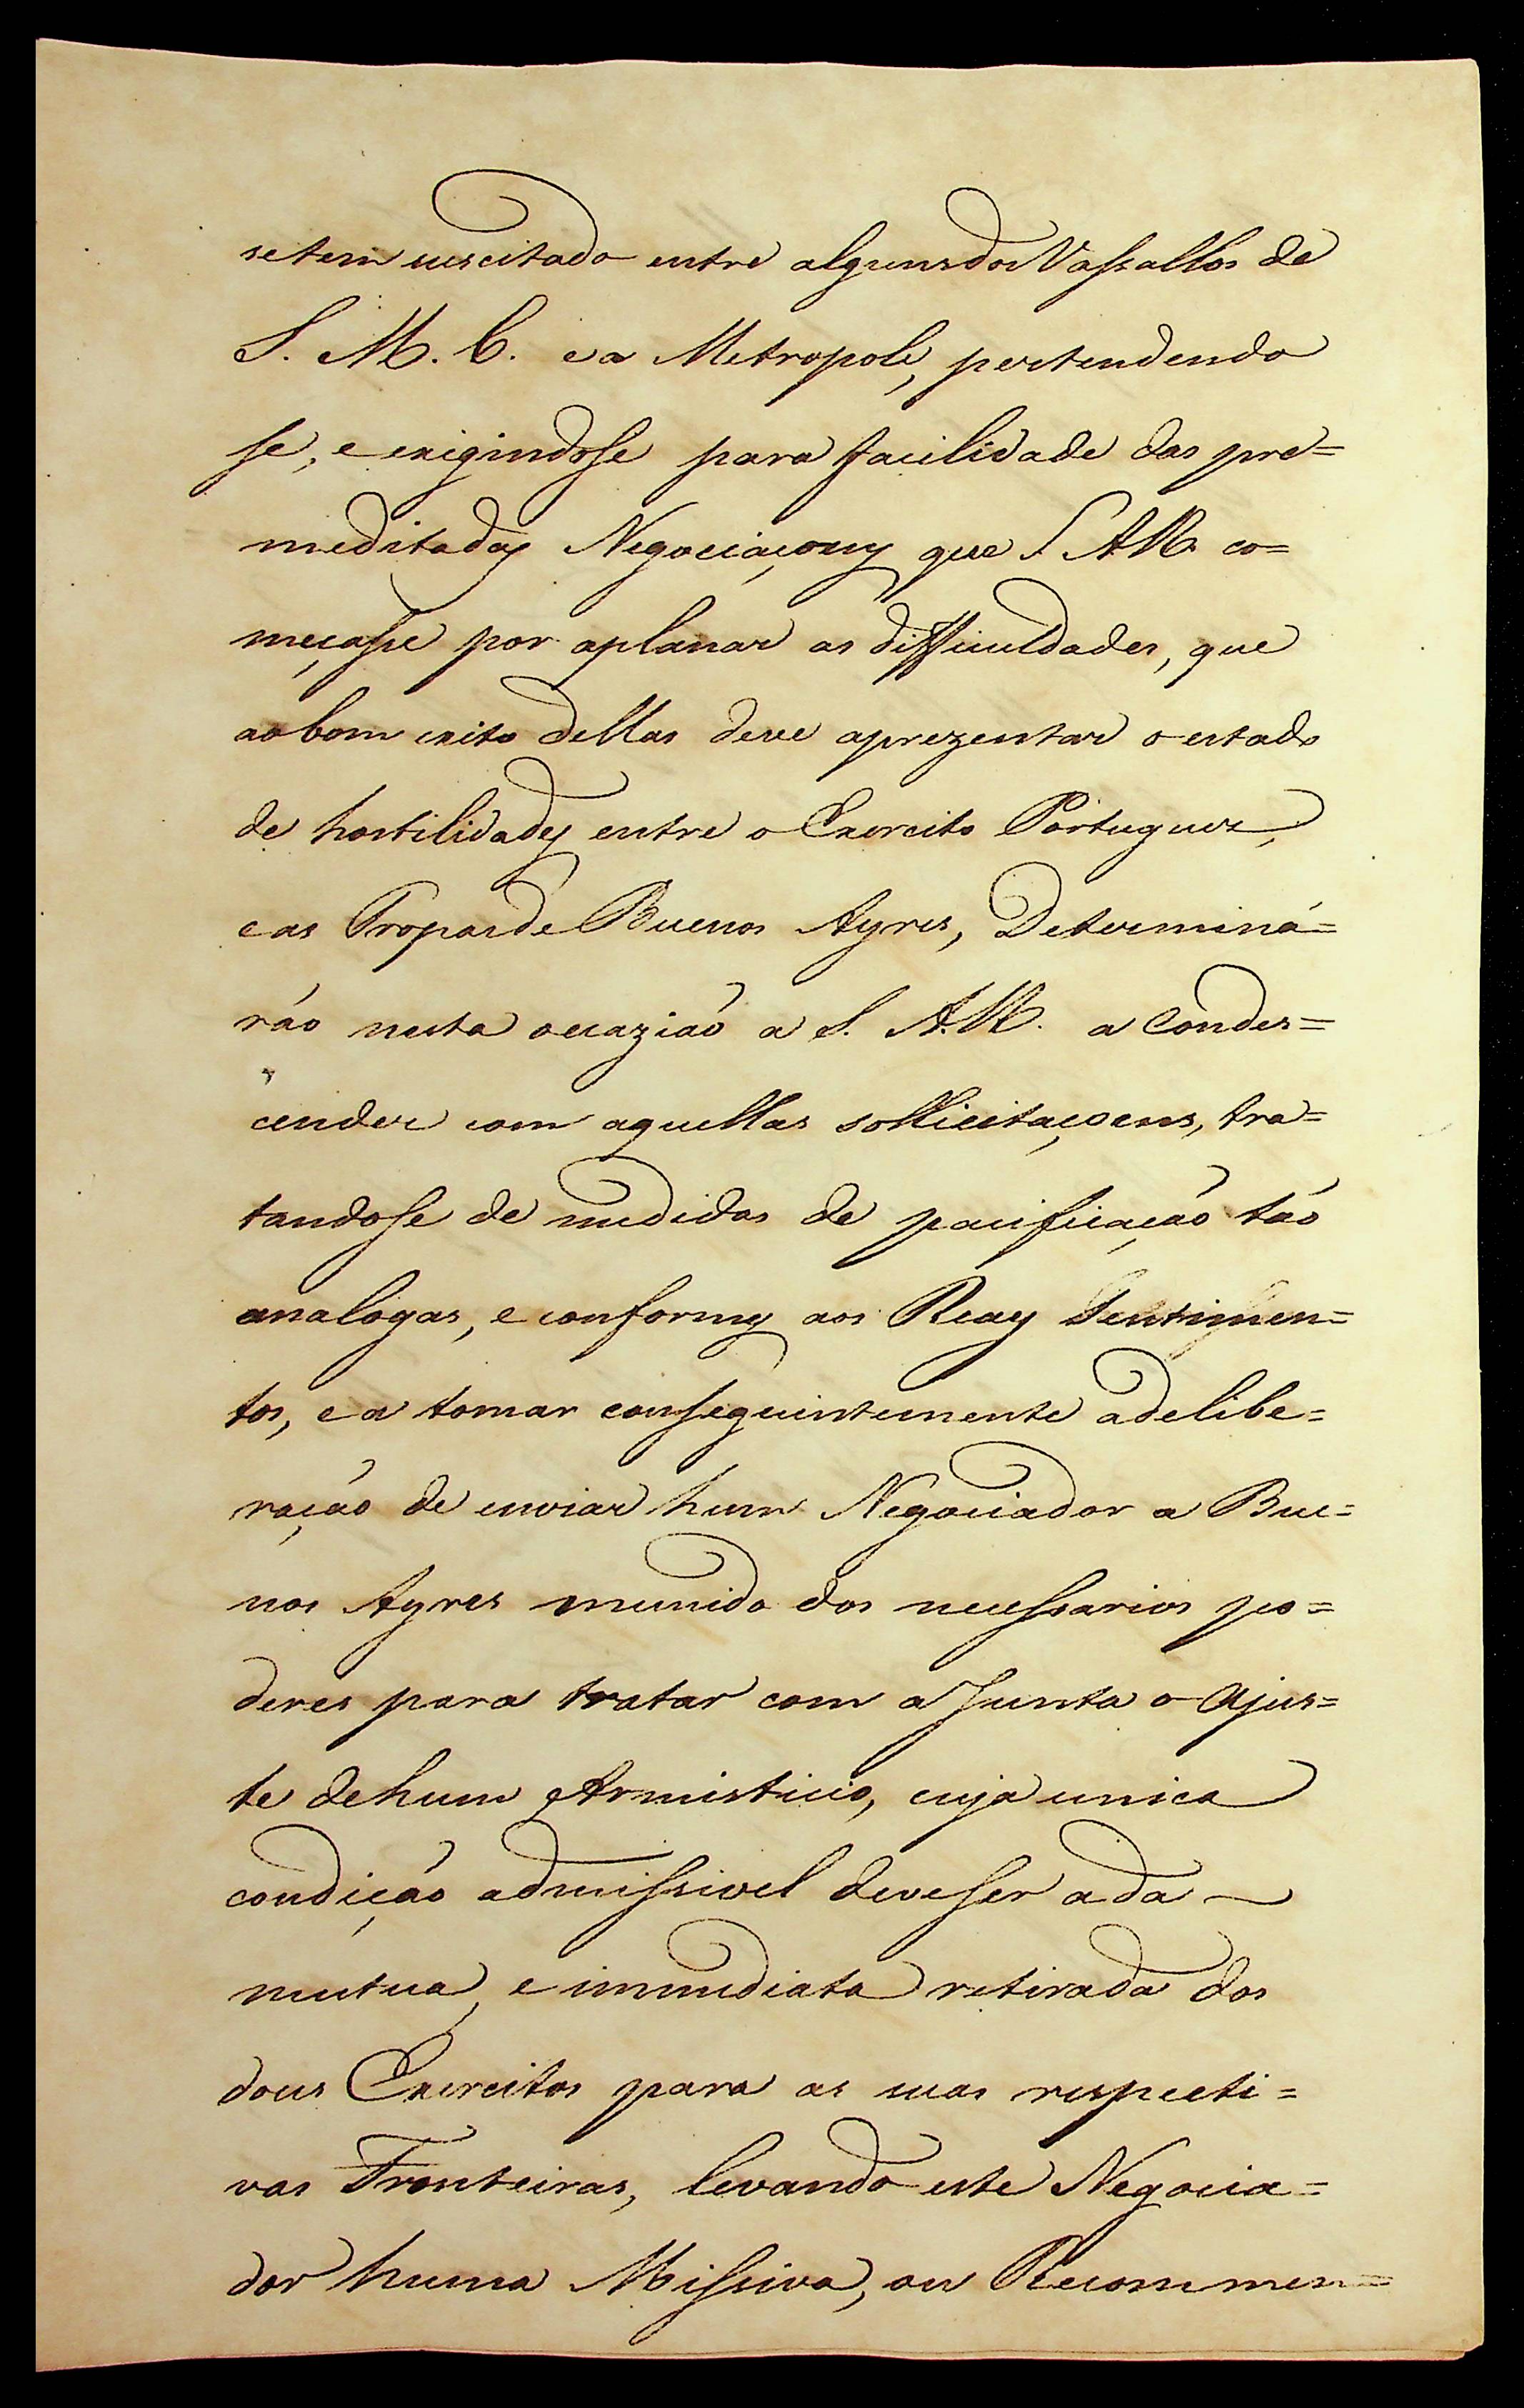 se tem suscitado entre alguns dos Vassallos de
S. M. C. e a Metropole, pertendendo
se, e exigindose para facilidade das pre=
meditadas Negociaçoens que S. A. R. co=
meçasse por aplanar as difficuldades, que
ao bom exito dellas deve aprezentar o estado
de hostilidades entre o Exercito Portuguez,
e as Tropas de Buenos Ayres, Determiná=
ráo nesta occaziaõ a S. A. R. a Condes=
cender com aquellas sollicitaçoens, tra=
tandose de medidas de pacificaçáo táo
analogas, e conformes aos Reaes Sentimen=
tos, e a tomar conseguintemente a delibe=
raçáo de enviar hum Negociador a Bue=
nos Ayres munido dos necessarios po=
deres para tratar com a Junta o Ajus=
te de hum Armisticio, cuja unica
condiçáo admissivel deve ser a da
mutua, e immediata retirada dos
dous Exercitos para as suas respecti=
vas Fronteiras, levando este Negocia=
dor huma Missiva, ou Recommen=